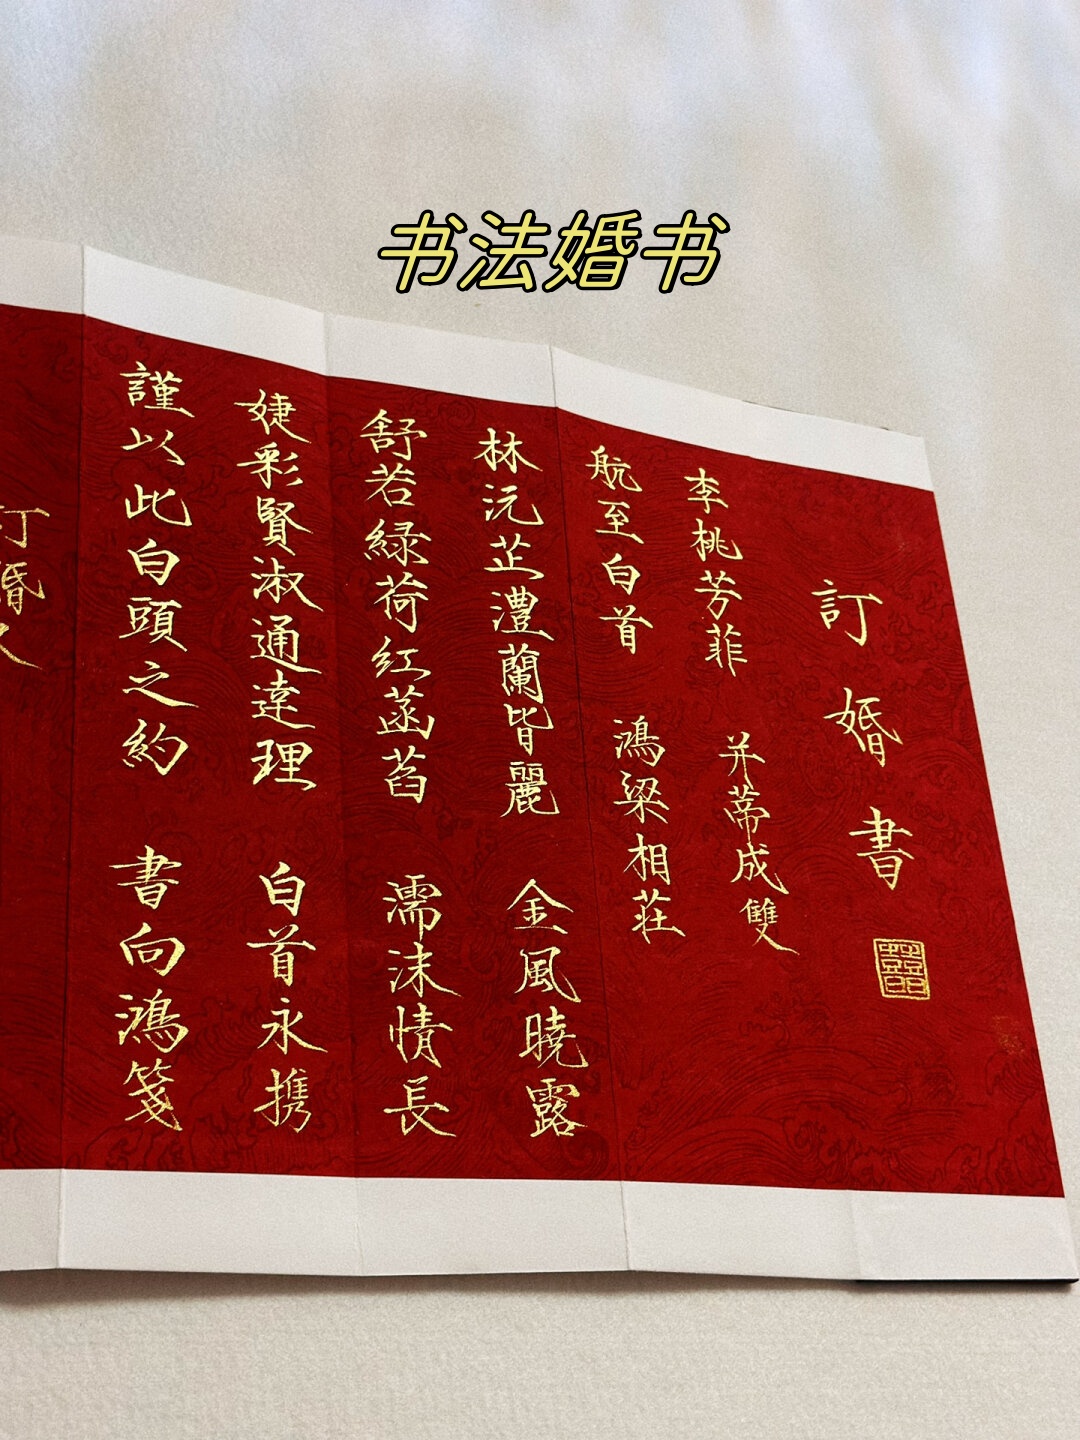 书法婚书
訂婚書
李桃芳菲 并蒂成雙
航至白首 鴻梁相莊
林沅芷澧蘭皆麗 金風曉露
舒若緑荷紅菡萏 濡沫情長
婕彩賢淑通達理 白首永携
謹以此白頭之約 書向鴻箋
訂婚人